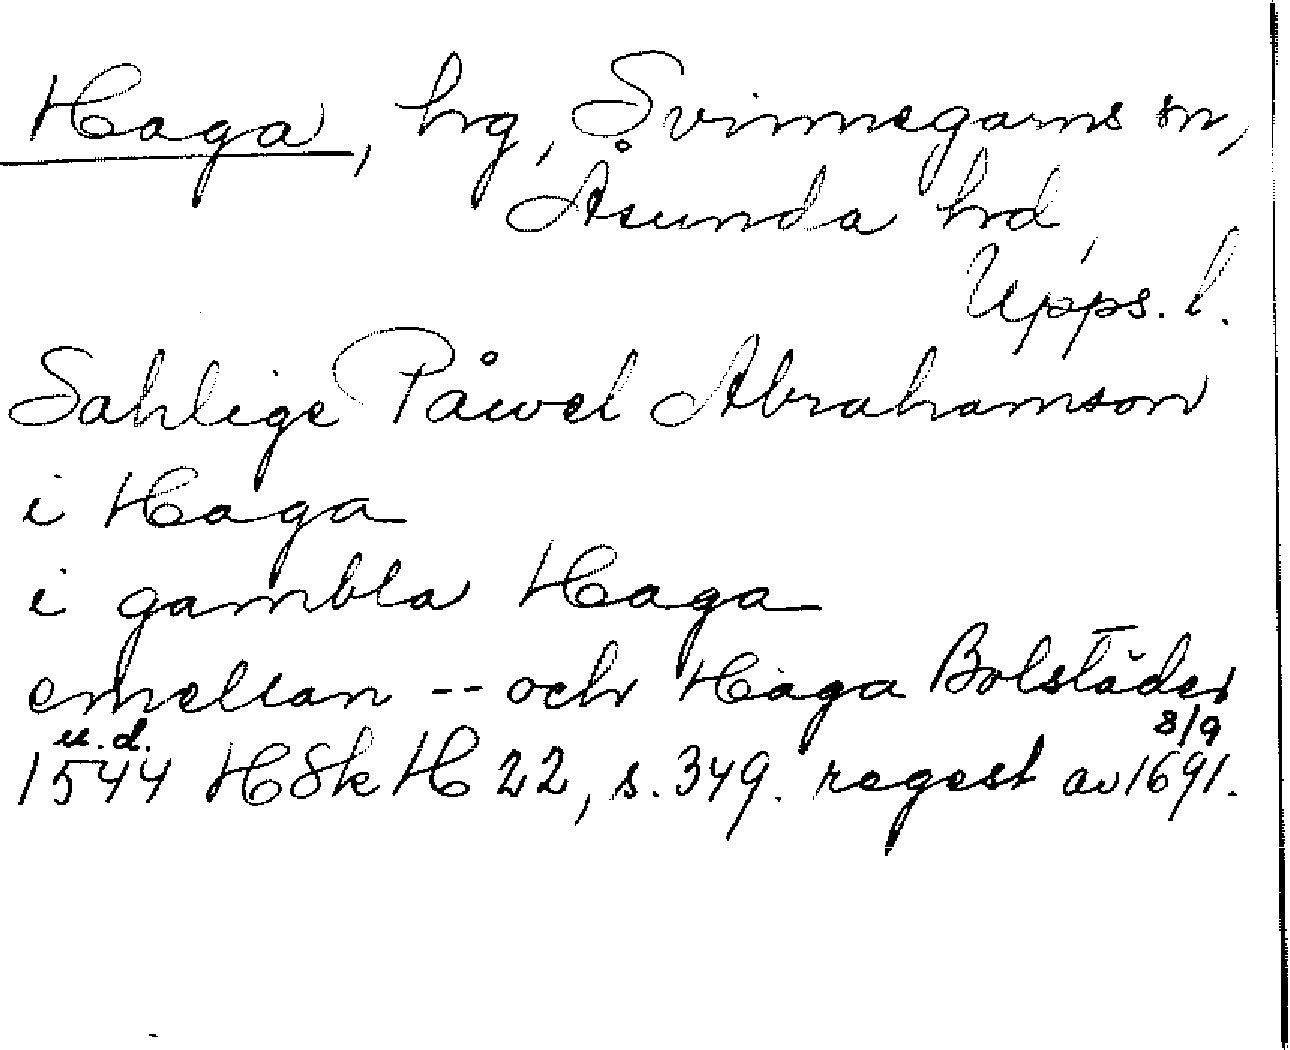 Haga, hrg, Svinnegarns sn,
Åsunda hrd,
Upps. l.
Sahlige Påwel Abrahamson
i Haga
i gambla Haga
emellan -- och Haga Bolstäder
u.d. 8/9
1544 HSk H 22, s. 349. regest av 1691.